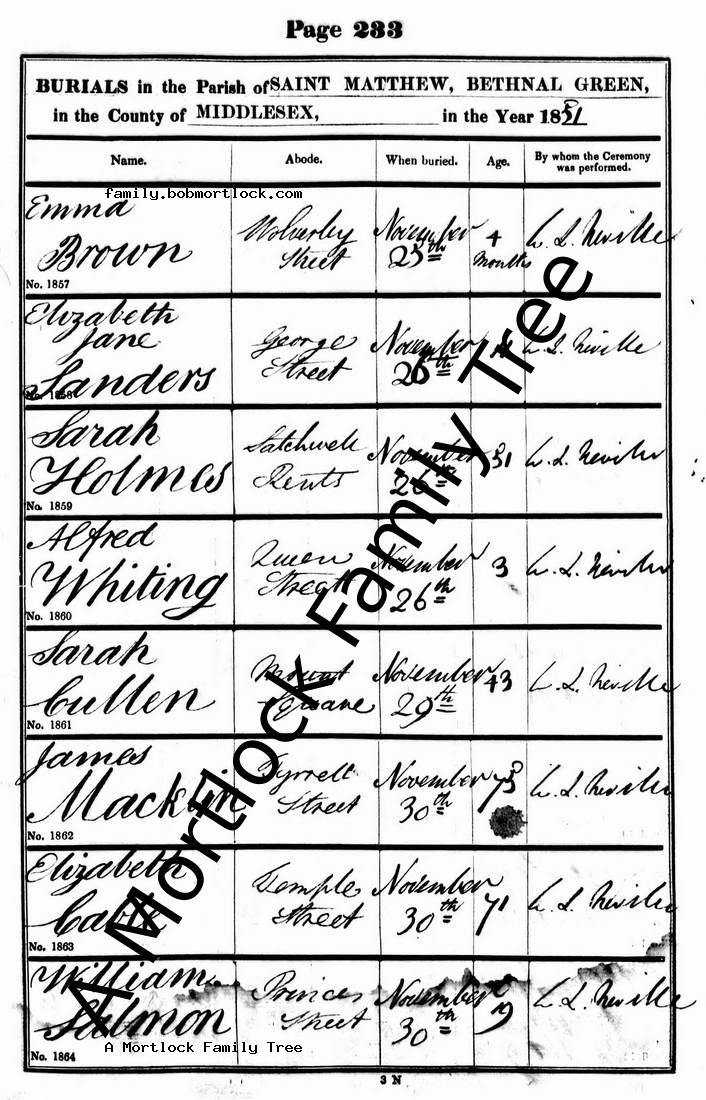 Page 233
BURIALS in the Parish of SAINT MATTHEW, BETHNAL GREEN,
in the County of MIDDLESEX, in the Year 1851
Name. Abode. When buried. Age. By whom the Ceremony was performed.
family.bobmortlock.com
Emma Brown Wolverley Street November 25th 4 Months L. S. Neville
No. 1857
Elizabeth Jane Sanders George Street November 26th L. S. Neville
No. 1858
Sarah Holmes Satchwell Rents November 26th 31 L. S. Neville
No. 1859
Alfred Whiting Queen Street November 26th 3 L. S. Neville
No. 1860
Sarah Cullen Mount Square November 29th 43 L. S. Neville
No. 1861
James Macklin Tyrrell Street November 30th L. S. Neville
No. 1862
Elizabeth Cable Temple Street November 30th 71 L. S. Neville
No. 1863
William Salmon Princes Street November 30th 19 L. S. Neville
No. 1864
A Mortlock Family Tree
A Mortlock Family Tree
3 N